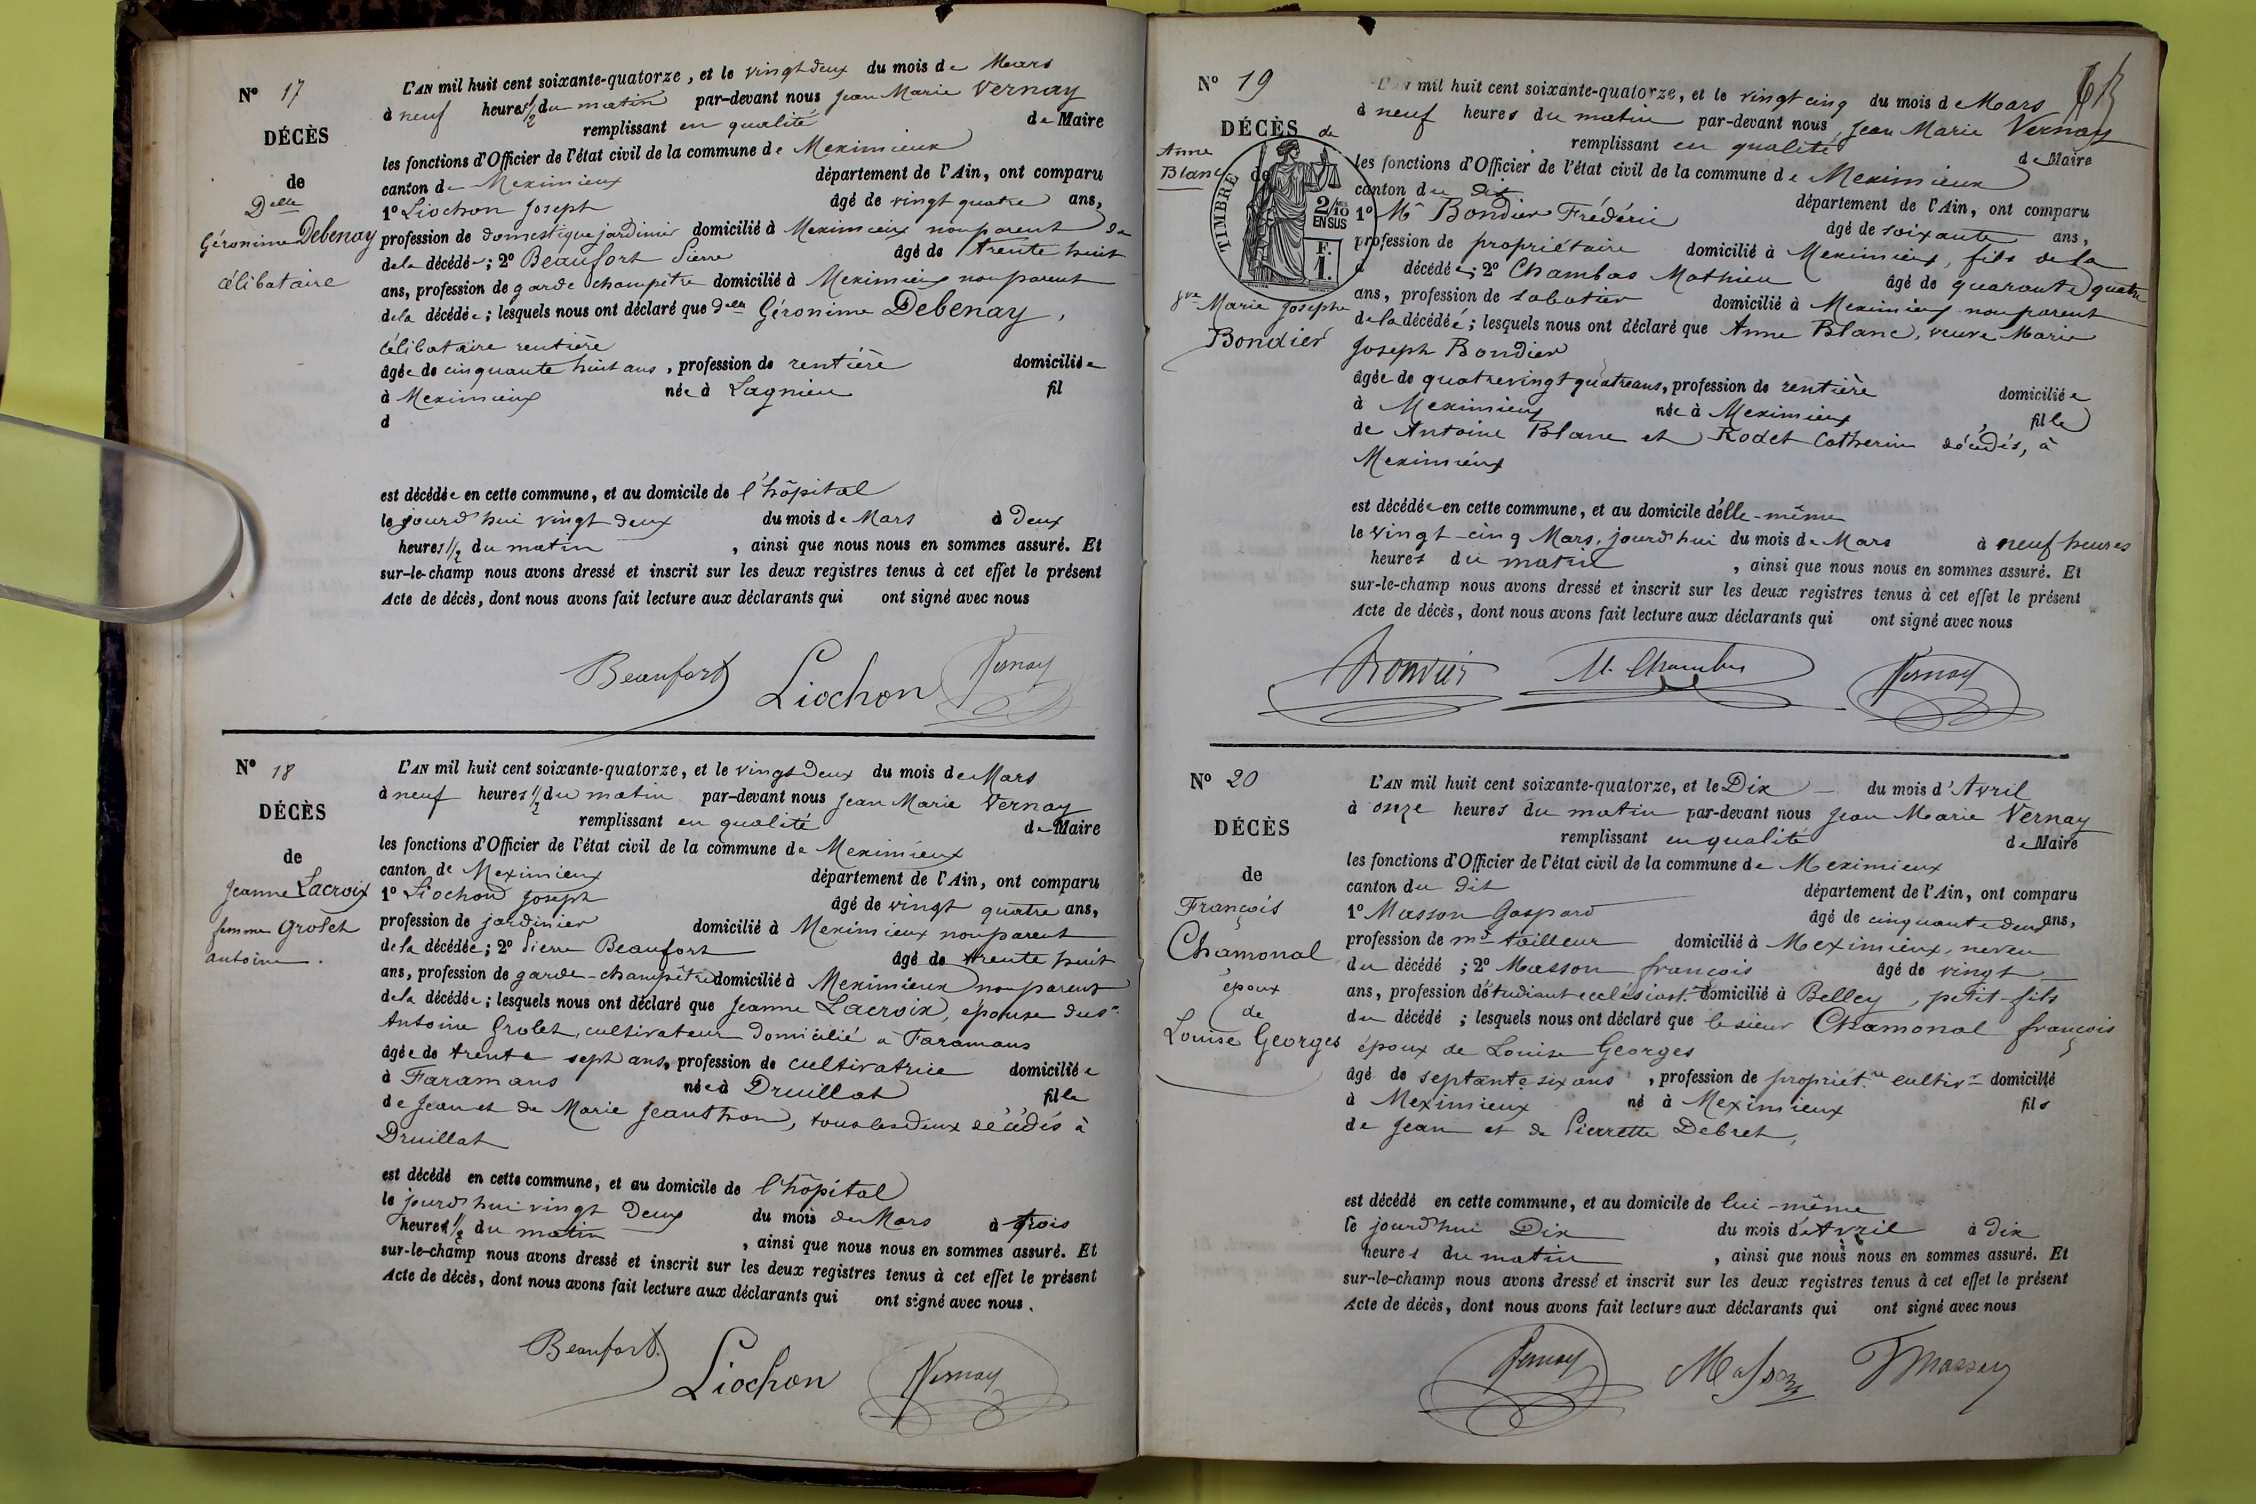 N° 17
DÉCÈS
de
Delle
Géronime Debenay
célibataire
L'AN mil huit cent soixante-quatorze, et le vingt deux du mois de Mars
à neuf heures 1/2 du matin par-devant nous Jean Marie Vernay
remplissant en qualité de Maire
les fonctions d'Officier de l'état civil de la commune de Meximieux
canton de Meximieux département de l'Ain, ont comparu
1° Liochon Joseph âgé de vingt quatre ans,
profession de domestique jardinier domicilié à Meximieux non parent de
de la décédée; 2° Beaufort Pierre âgé de trente huit
ans, profession de garde champêtre domicilié à Meximieux non parent
de la décédée; lesquels nous ont déclaré que delle Géronime Debenay,
célibataire rentière
âgée de cinquante huit ans, profession de rentière domiciliée
à Meximieux née à Lagnieu fil
d
est décédée en cette commune, et au domicile de l'hôpital
le jourd'hui vingt deux du mois de Mars à deux
heures 1/2 du matin, ainsi que nous nous en sommes assuré. Et
sur-le-champ nous avons dressé et inscrit sur les deux registres tenus à cet effet le présent
Acte de décès, dont nous avons fait lecture aux déclarants qui ont signé avec nous
Beaufort Liochon Vernay
N° 18
DÉCÈS
de
Jeanne Lacroix
femme Grolet
antoine.
L'AN mil huit cent soixante-quatorze, et le vingt deux du mois de Mars
à neuf heures 1/2 du matin par-devant nous Jean Marie Vernay
remplissant en qualité de Maire
les fonctions d'Officier de l'état civil de la commune de Meximieux
canton de Meximieux département de l'Ain, ont comparu
1° Liochon Joseph âgé de vingt quatre ans,
profession de jardinier domicilié à Meximieux non parent
de la décédée; 2° Pierre Beaufort âgé de trente huit
ans, profession de garde-champêtre domicilié à Meximieux non parent
de la décédée; lesquels nous ont déclaré que Jeanne Lacroix, épouse du sr
Antoine Grolet, cultivateur domicilié à Faramans
âgée de trente sept ans, profession de cultivatrice domiciliée
à Faramans née à Druillat fille
de Jean et de Marie Jeanthon, tous les deux décédés à
Druillat
est décédé en cette commune, et au domicile de l'hôpital
le jourd'hui vingt deux du mois de Mars à trois
heures 1/2 du matin, ainsi que nous nous en sommes assuré. Et
sur-le-champ nous avons dressé et inscrit sur les deux registres tenus à cet effet le présent
Acte de décès, dont nous avons fait lecture aux déclarants qui ont signé avec nous.
Beaufort. Liochon Vernay
N° 19
DÉCÈS de
Anne
Blanc de
TIMBRE
2/10 EN SUS
F.
1.
vve Marie Josephe
Bondier
L'AN mil huit cent soixante-quatorze, et le vingt cinq du mois de Mars
à neuf heures du matin par-devant nous Jean Marie Vernay
remplissant en qualité de Maire
les fonctions d'Officier de l'état civil de la commune de Meximieux
canton du dit département de l'Ain, ont comparu
1° Mr Bondier Frédéric âgé de soixante ans,
profession de propriétaire domicilié à Meximieux, fils de la
décédée; 2° Chambas Mathieu âgé de quarante quatre
ans, profession de sabotier domicilié à Meximieux non parent
de la décédée; lesquels nous ont déclaré que Anne Blanc, veuve Marie
Joseph Bondier
âgée de quatrevingt quatre ans, profession de rentière domiciliée
à Meximieux née à Meximieux, fille
de Antoine Blanc et Rodet Catherine décédés, à
Meximieux
est décédée en cette commune, et au domicile d'elle-même
le vingt-cinq Mars, jourd'hui du mois de Mars à neuf heures
heures du matin, ainsi que nous nous en sommes assuré. Et
sur-le-champ nous avons dressé et inscrit sur les deux registres tenus à cet effet le présent
Acte de décès, dont nous avons fait lecture aux déclarants qui ont signé avec nous
Bondier M. Chambas Vernay
N° 20
DÉCÈS
de
François
Chamonal
époux
de
Louise Georges
L'AN mil huit cent soixante-quatorze, et le Dix du mois d'Avril
à onze heures du matin par-devant nous Jean Marie Vernay
remplissant en qualité de Maire
les fonctions d'Officier de l'état civil de la commune de Meximieux
canton du dit département de l'Ain, ont comparu
1° Masson Gaspard âgé de cinquante deux ans,
profession de md tailleur domicilié à Meximieux, neveu
du décédé; 2° Masson françois âgé de vingt
ans, profession d'étudiant ecclésiast. domicilié à Belley, petit-fils
du décédé; lesquels nous ont déclaré que le sieur Chamonal françois
époux de Louise Georges
âgé de septante six ans, profession de propriét.re cultivr domicilié
à Meximieux né à Meximieux fils
de Jean et de Pierrette Debret,
est décédé en cette commune, et au domicile de lui-même
le jourd'hui Dix du mois d'Avril à dix
heures du matin, ainsi que nous nous en sommes assuré. Et
sur-le-champ nous avons dressé et inscrit sur les deux registres tenus à cet effet le présent
Acte de décès, dont nous avons fait lecture aux déclarants qui ont signé avec nous
Vernay Masson F Masson